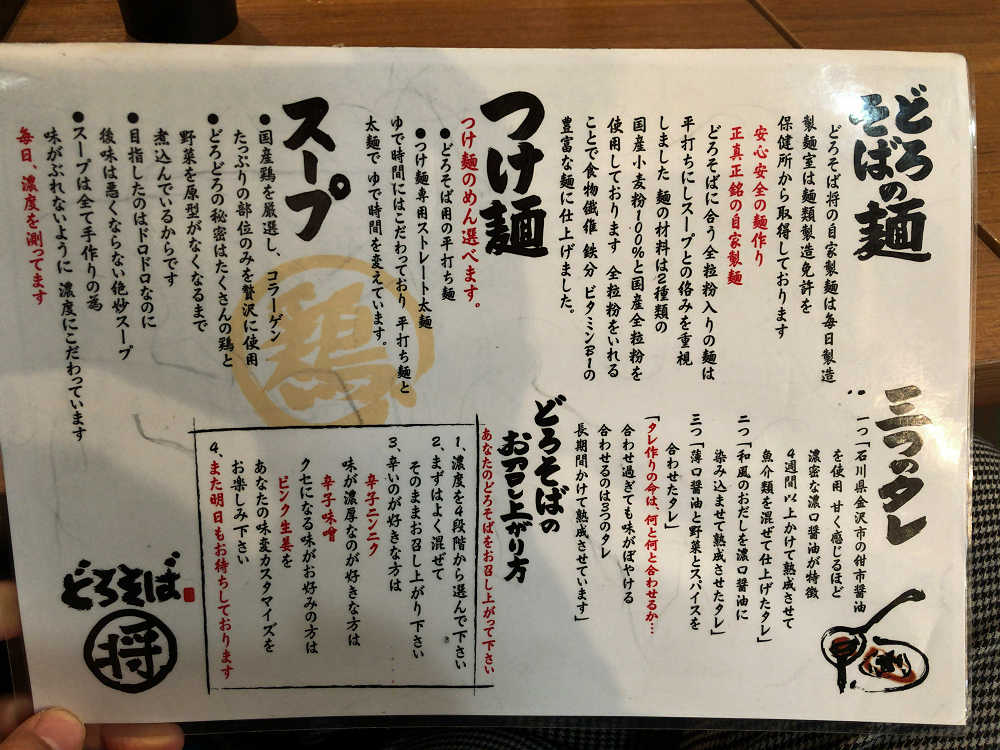 どろそばの麺
どろそば将の自家製麺は毎日製造
製麺室は麺類製造免許を
保健所から取得しております
安心安全の麺作り
正真正銘の自家製麺
どろそばに合う全粒粉入りの麺は
平打ちにしスープとの絡みを重視
しました 麺の材料は2種類の
国産小麦粉100%と国産全粒粉を
使用しております 全粒粉をいれる
ことで食物繊維 鉄分 ビタミンB1の
豊富な麺に仕上げました。
つけ麺
つけ麺のめん選べます。
●どろそば用の平打ち麺
●つけ麺専用ストレート太麺
ゆで時間にはこだわっており 平打ち麺と
太麺で ゆで時間を変えています。
スープ
●国産鶏を厳選し、コラーゲン
たっぷりの部位のみを贅沢に使用
●どろどろの秘密はたくさんの鶏と
野菜を原型がなくなるまで
煮込んでいるからです
●目指したのはドロドロなのに
後味は悪くならない絶妙スープ
●スープは全て手作りの為
味がぶれないように 濃度にこだわっています
毎日、濃度を測ってます
鶏
三つのタレ
一つ「石川県金沢市の紺市醤油
を使用 甘く感じるほど
濃密な濃口醤油が特徴
4週間以上かけて熟成させて
魚介類を混ぜて仕上げたタレ」
二つ「和風のおだしを濃口醤油に
染み込ませて熟成させたタレ」
三つ「薄口醤油と野菜とスパイスを
合わせたタレ」
「タレ作りの命は、何と何と合わせるか…
合わせ過ぎても味がぼやける
合わせるのは3つのタレ
長期間かけて熟成させています」
どろそばの
お召し上がり方
あなたのどろそばをお召し上がって下さい
1、濃度を4段階から選んで下さい
2、まずはよく混ぜて
そのままお召し上がり下さい
3、辛いのが好きな方は
辛子ニンニク
味が濃厚なのが好きな方は
辛子味噌
クセになる味がお好みの方は
ピンク生姜を
あなたの味変カスタマイズを
お楽しみ下さい
4、また明日もお待ちしております
どろそば
将